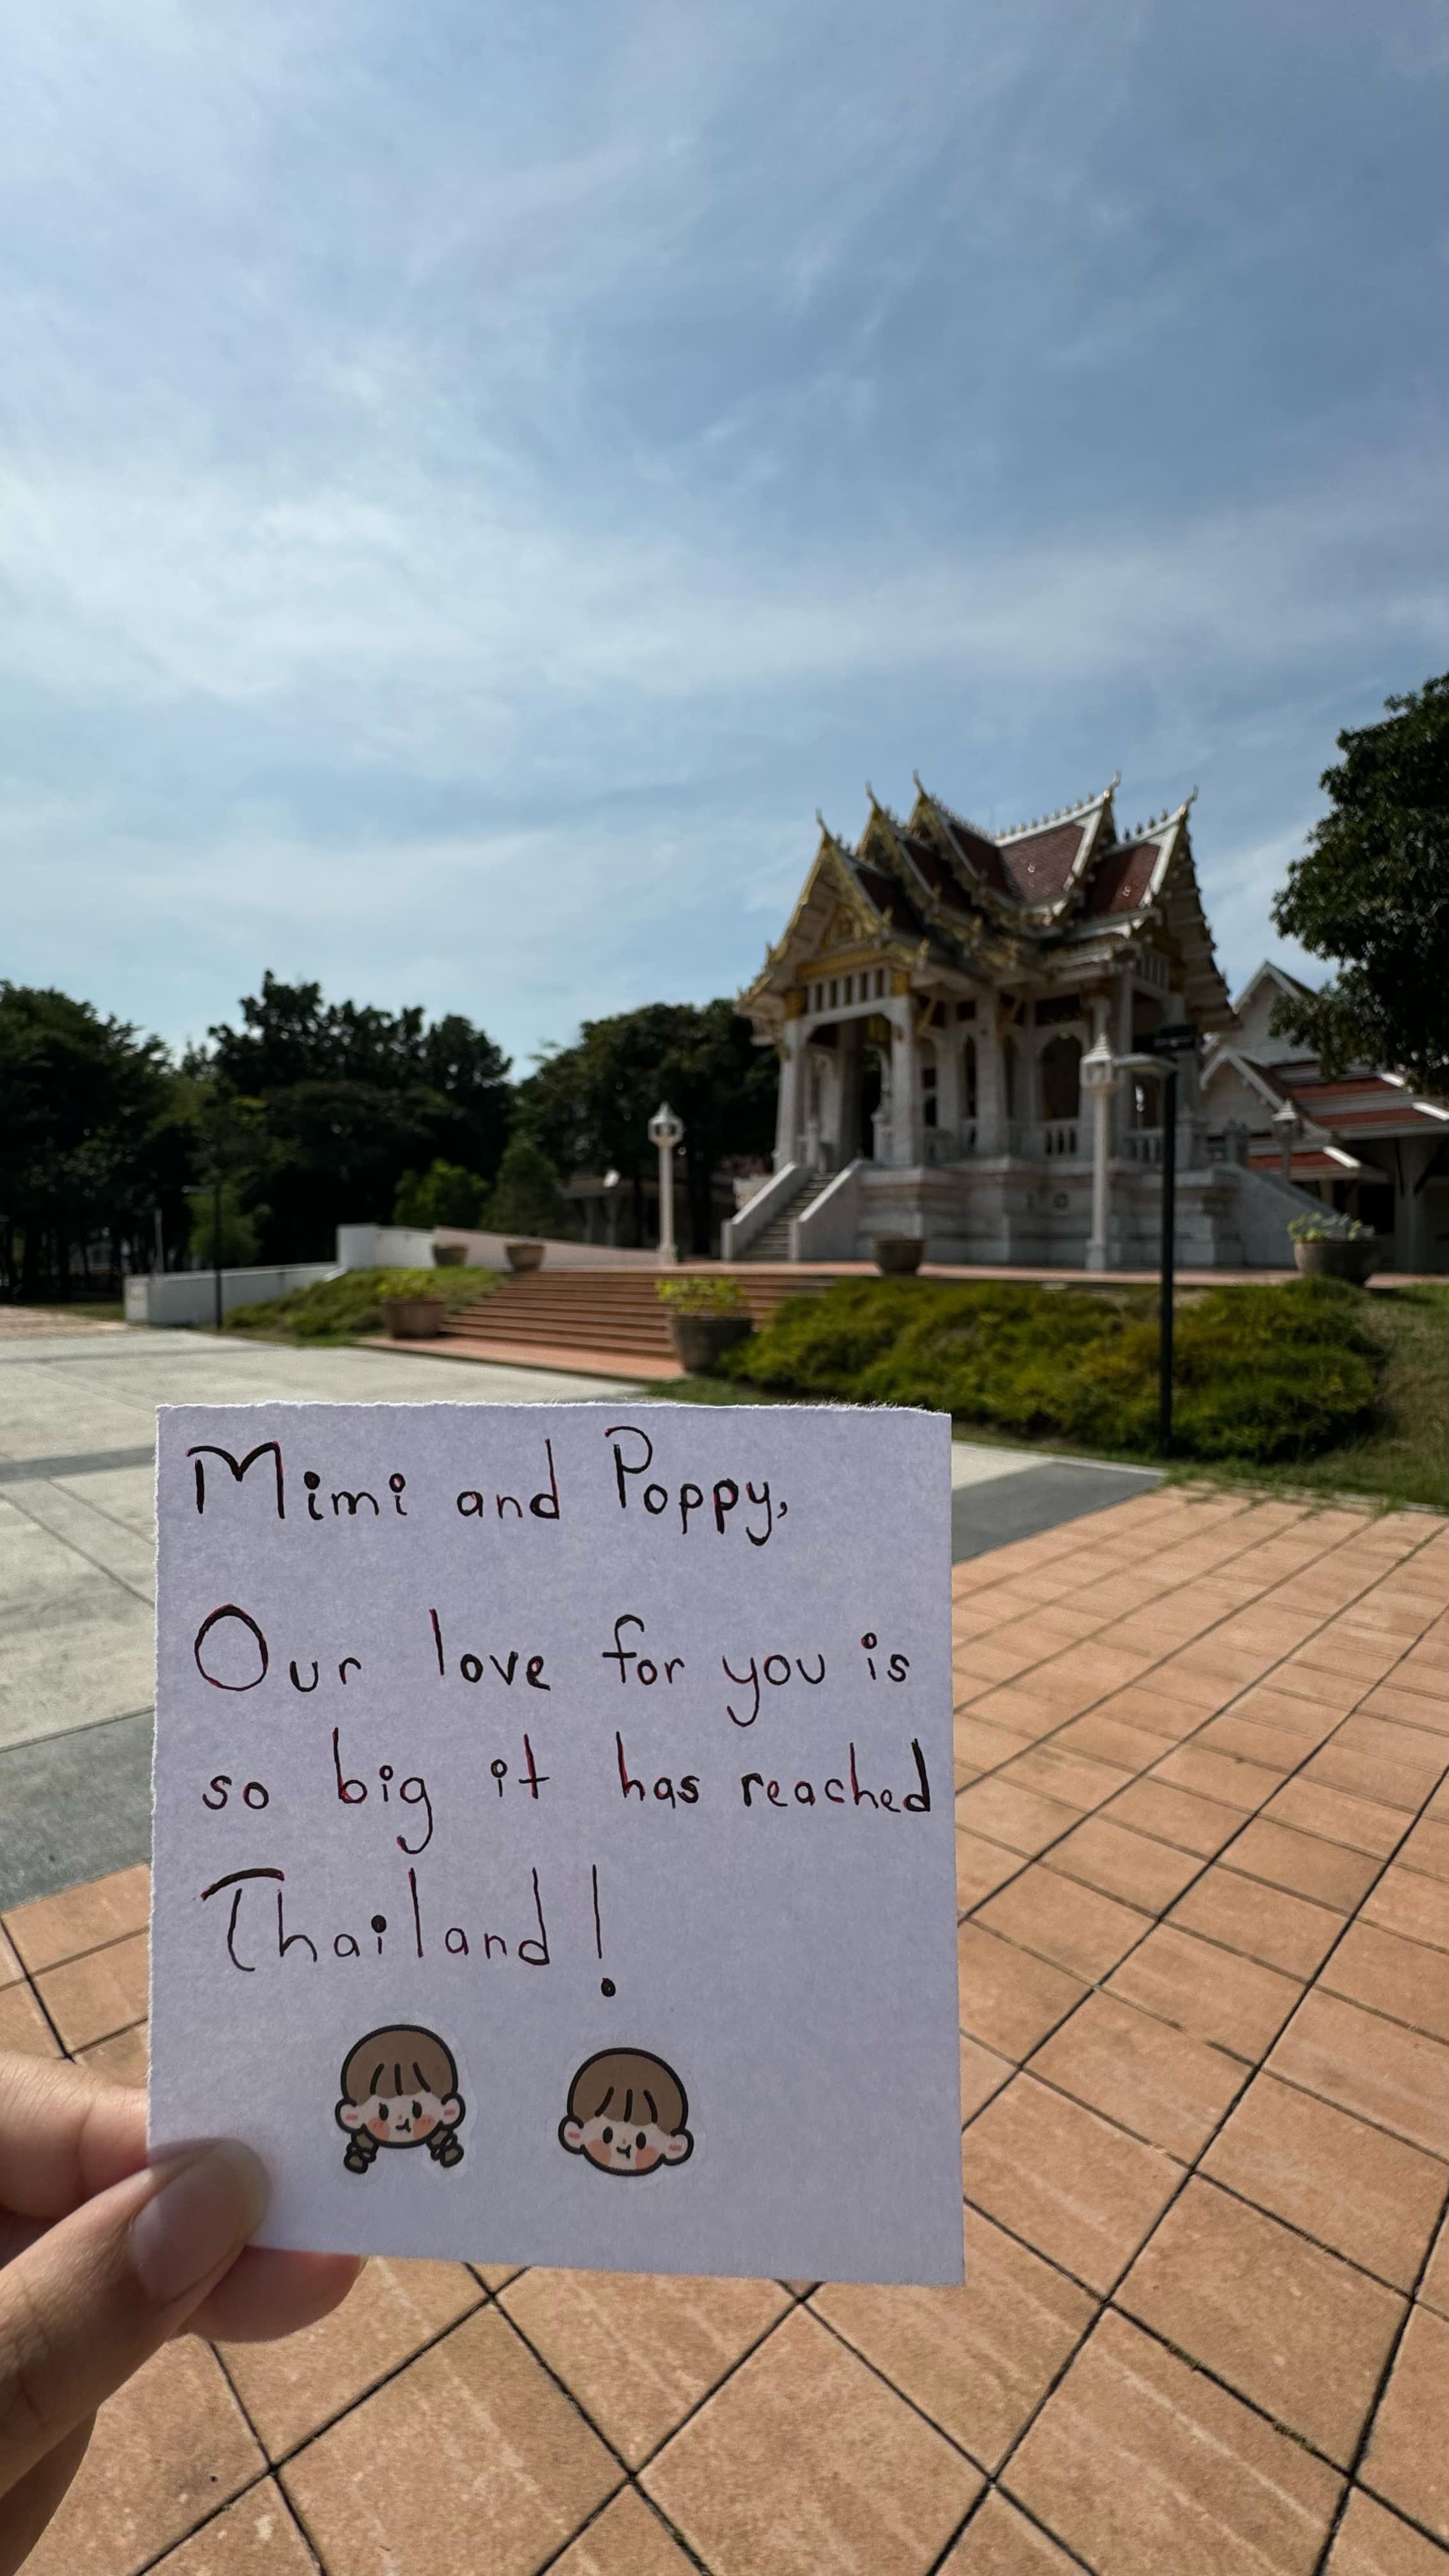 Mimi and Poppy,
Our love for you is
so big it has reached
Thailand!